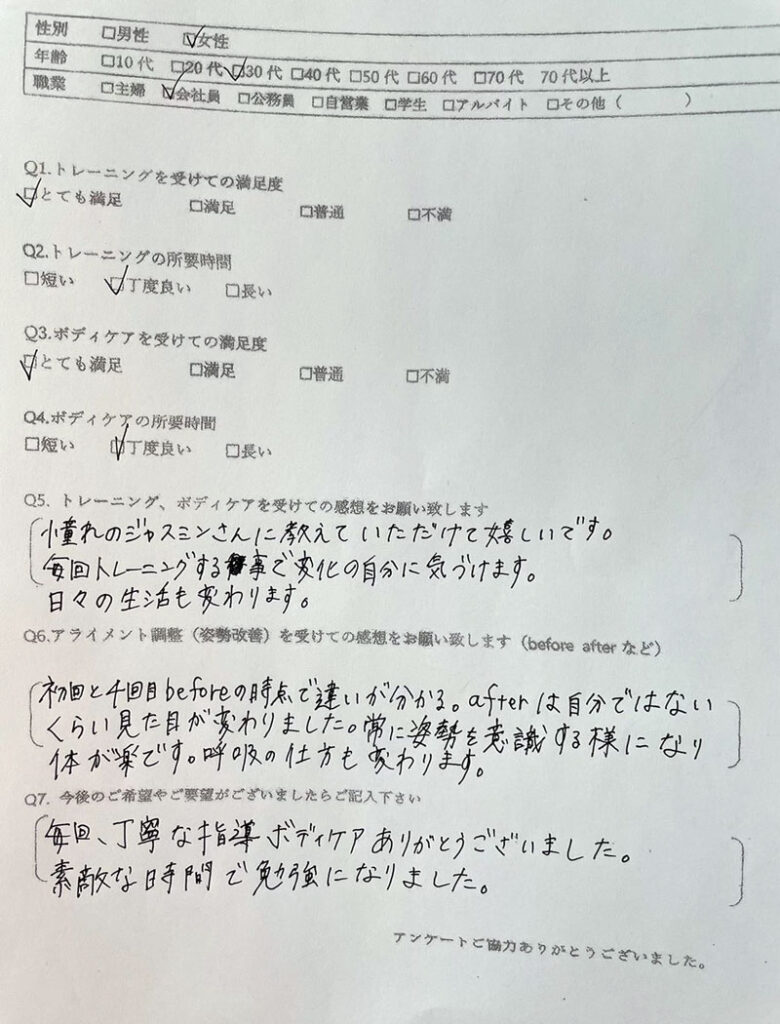 性別 □男性 ☑女性
年齢 □10代 □20代 ☑30代 □40代 □50代 □60代 □70代 70代以上
職業 □主婦 ☑会社員 □公務員 □自営業 □学生 □アルバイト □その他（ ）
Q1.トレーニングを受けての満足度
☑とても満足 □満足 □普通 □不満
Q2.トレーニングの所要時間
□短い ☑丁度良い □長い
Q3.ボディケアを受けての満足度
☑とても満足 □満足 □普通 □不満
Q4.ボディケアの所要時間
□短い ☑丁度良い □長い
Q5. トレーニング、ボディケアを受けての感想をお願い致します
憧れのジャスミンさんに教えていただけて嬉しいです。
毎回トレーニングする事で変化の自分に気づけます。
日々の生活も変わります。
Q6.アライメント調整（姿勢改善）を受けての感想をお願い致します（before afterなど）
初回と4回目beforeの時点で違いが分かる。afterは自分ではない
くらい見た目が変わりました。常に姿勢を意識する様になり
体が楽です。呼吸の仕方も変わります。
Q7. 今後のご希望やご要望がございましたらご記入下さい
毎回、丁寧な指導 ボディケア ありがとうございました。
素敵な時間で勉強になりました。
アンケートご協力ありがとうございました。